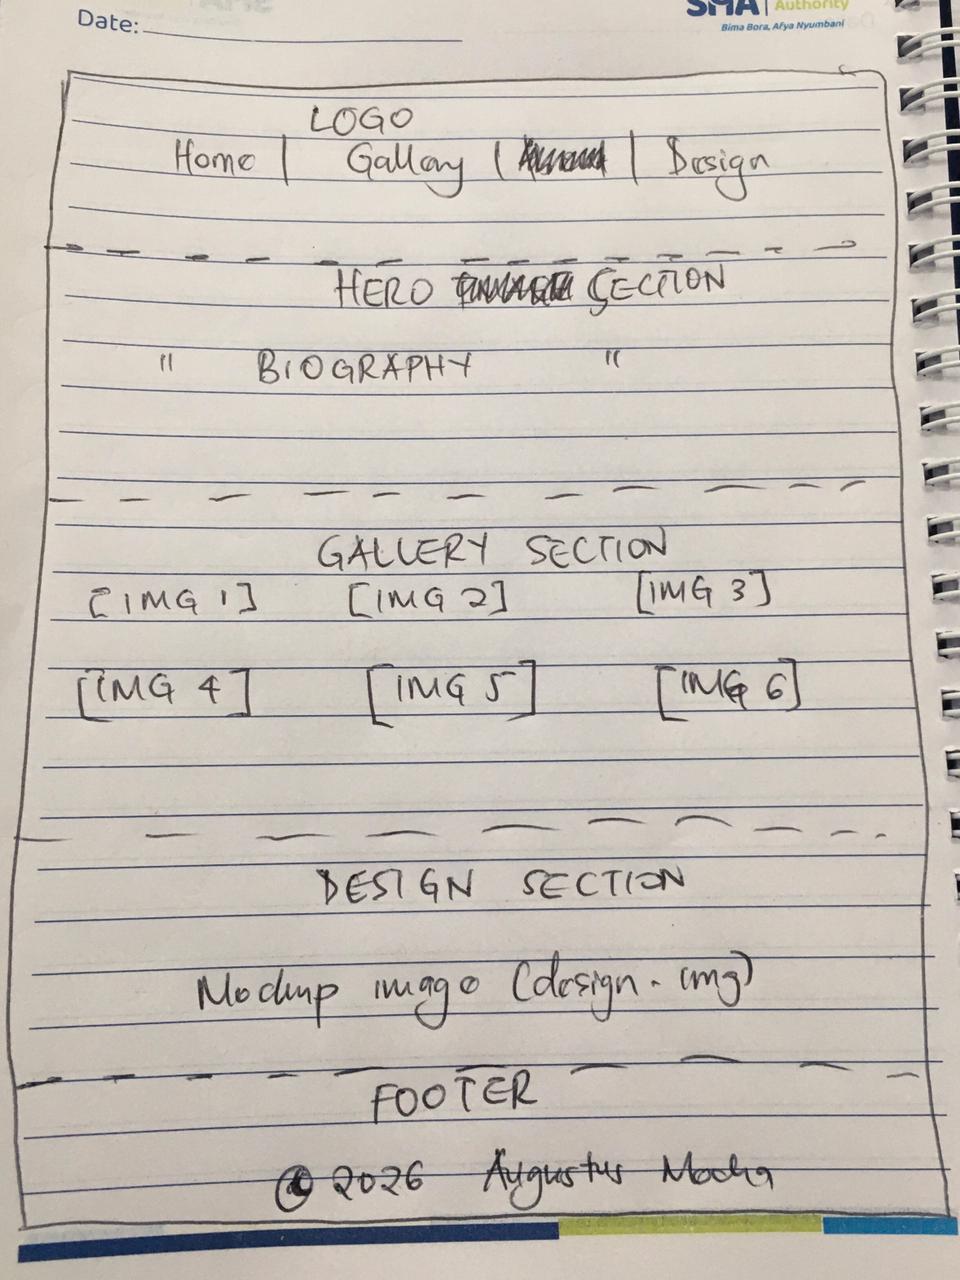 Date:
Authority
Bima Bora, Afya Nyumbani
LOGO
Home | Gallery | | Design
HERO SECTION
" BIOGRAPHY "
GALLERY SECTION
[IMG 1] [IMG 2] [IMG 3]
[IMG 4] [IMG 5] [IMG 6]
DESIGN SECTION
Mockup image (design.img)
FOOTER
© 2026 Augustus